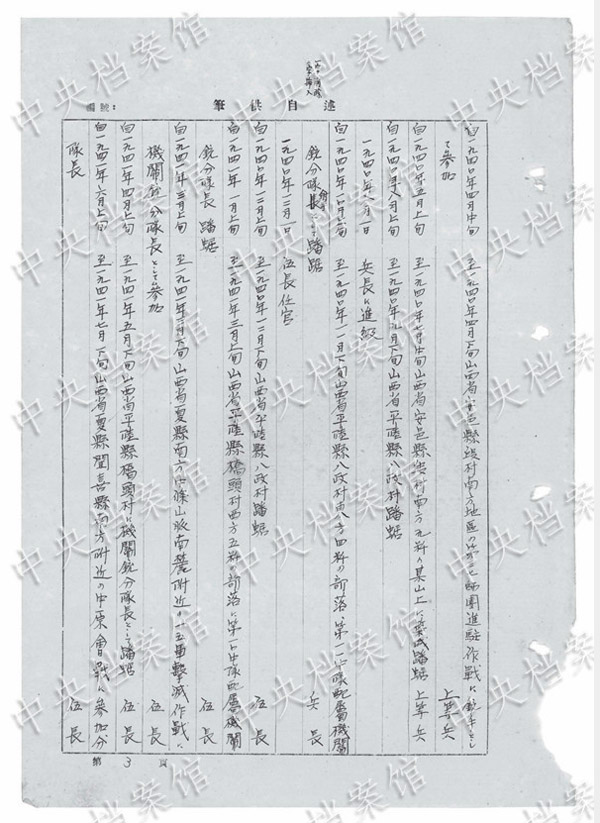 編號：
筆供自述
自一九四〇年四月中旬 至一九四〇年四月下旬山西省安邑縣 村南方地區の 進駐作戦に 銃手とし
て参加 上等兵
自一九四〇年五月上旬 至一九四〇年七月中旬山西省安邑縣 村南方九粁の某山上に 蟠踞 上等兵
自一九四〇年八月上旬 至一九四〇年九月下旬山西省平陸縣八政村蟠踞
一九四〇年八月一日 兵長に進級
自一九四〇年一〇月上旬 至一九四〇年一一月下旬山西省平陸縣八政村 方四粁の部落に第一中隊配属機關
銃分隊長として蟠踞 兵長
一九四〇年一二月一日 伍長任官
自一九四〇年一二月上旬 至一九四〇年一二月下旬山西省平陸縣八政村蟠踞 伍長
自一九四一年一月上旬 至一九四一年三月上旬 山西省平陸縣橋頭村西方五粁の部落に第一中隊配属機關
銃分隊長 蟠踞 伍長
自一九四一年三月上旬 至一九四一年 月下旬山西省夏縣南方中條山脈南麓附近の一五軍撃滅作戦に
機關銃分隊長として参加 伍長
自一九四一年四月上旬 至一九四一年五月下旬山西省平陸縣橋頭村に機關銃分隊長として蟠踞 伍長
自一九四一年六月上旬 至一九四一年七月下旬山西省夏縣聞喜縣南方附近の中原會戰に参加分
隊長 伍長
第 3 頁
中央档案馆